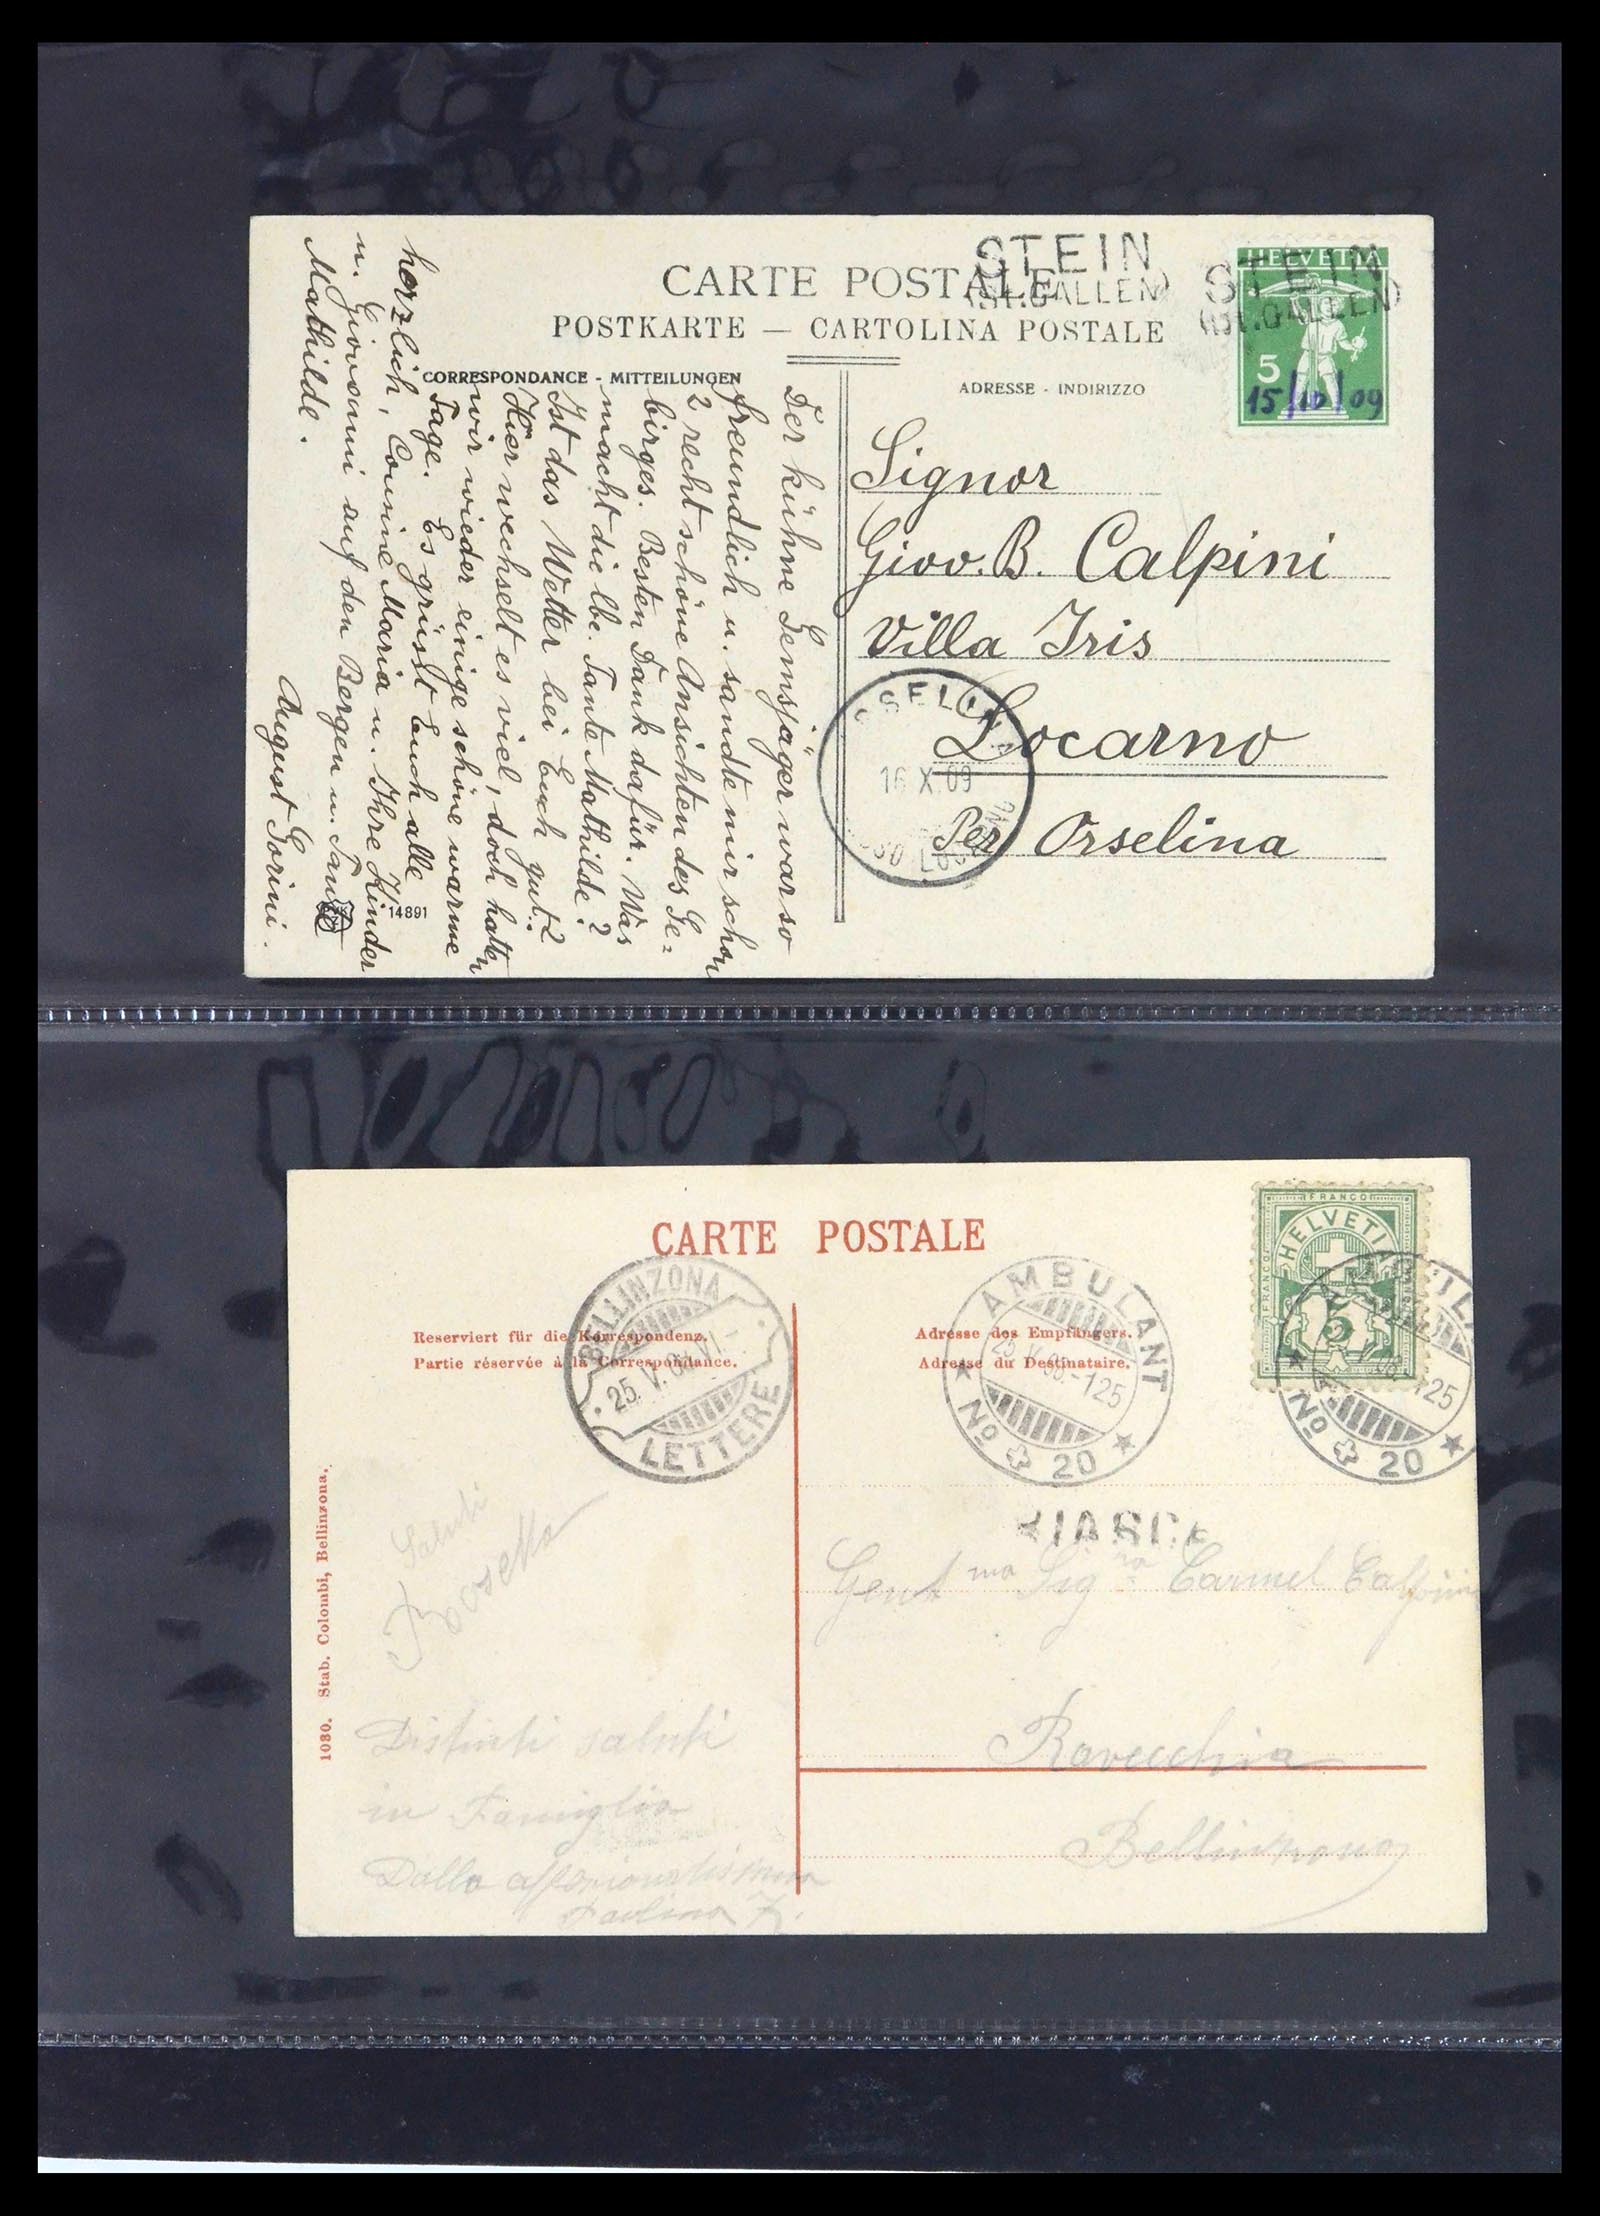 STEIN
(ST. GALLEN)
STEIN
(ST. GALLEN)
HELVETIA
5
15/10/09
CARTE POSTALE
POSTKARTE — CARTOLINA POSTALE
CORRESPONDANCE - MITTEILUNGEN
ADRESSE - INDIRIZZO
Der kühne Gemsjäger war so
freundlich u. sandte mir schon
2 recht schöne Ansichten des Ge=
birges. Besten Dank dafür. Was
macht die lbe. Tante Mathilde?
Ist das Wetter bei Euch gut?
Hier wechselt es viel, doch hatten
wir wieder einige schöne warme
Tage. Es grüsst Euch alle
herzlich, Cousine Maria u. Ihre Kinder
u. Giovanni auf den Bergen u. Tante
Mathilde.
August Torini.
14891
Signor
Giov. B. Calpini
Villa Iris
Locarno
Per Orselina
ORSELINA
16 X 09
CARTE POSTALE
FRANCO
HELVETIA
FRANCO
5
BELLINZONA
25. V.
LETTERE
AMBULANT
25 V 125
No 20
AMBULANT
125
No 20
Reserviert für die Korrespondenz.
Partie réservée à la Correspondance.
Adresse des Empfängers.
Adresse du Destinataire.
BIASCA
Saluti
Gent ma Sig ra Carmel Calpini
Distinti saluti
in Famiglia
Dalla affezionatissima
Paolina
Ravecchia
Bellinzona
1080. Stab. Colombi, Bellinzona.